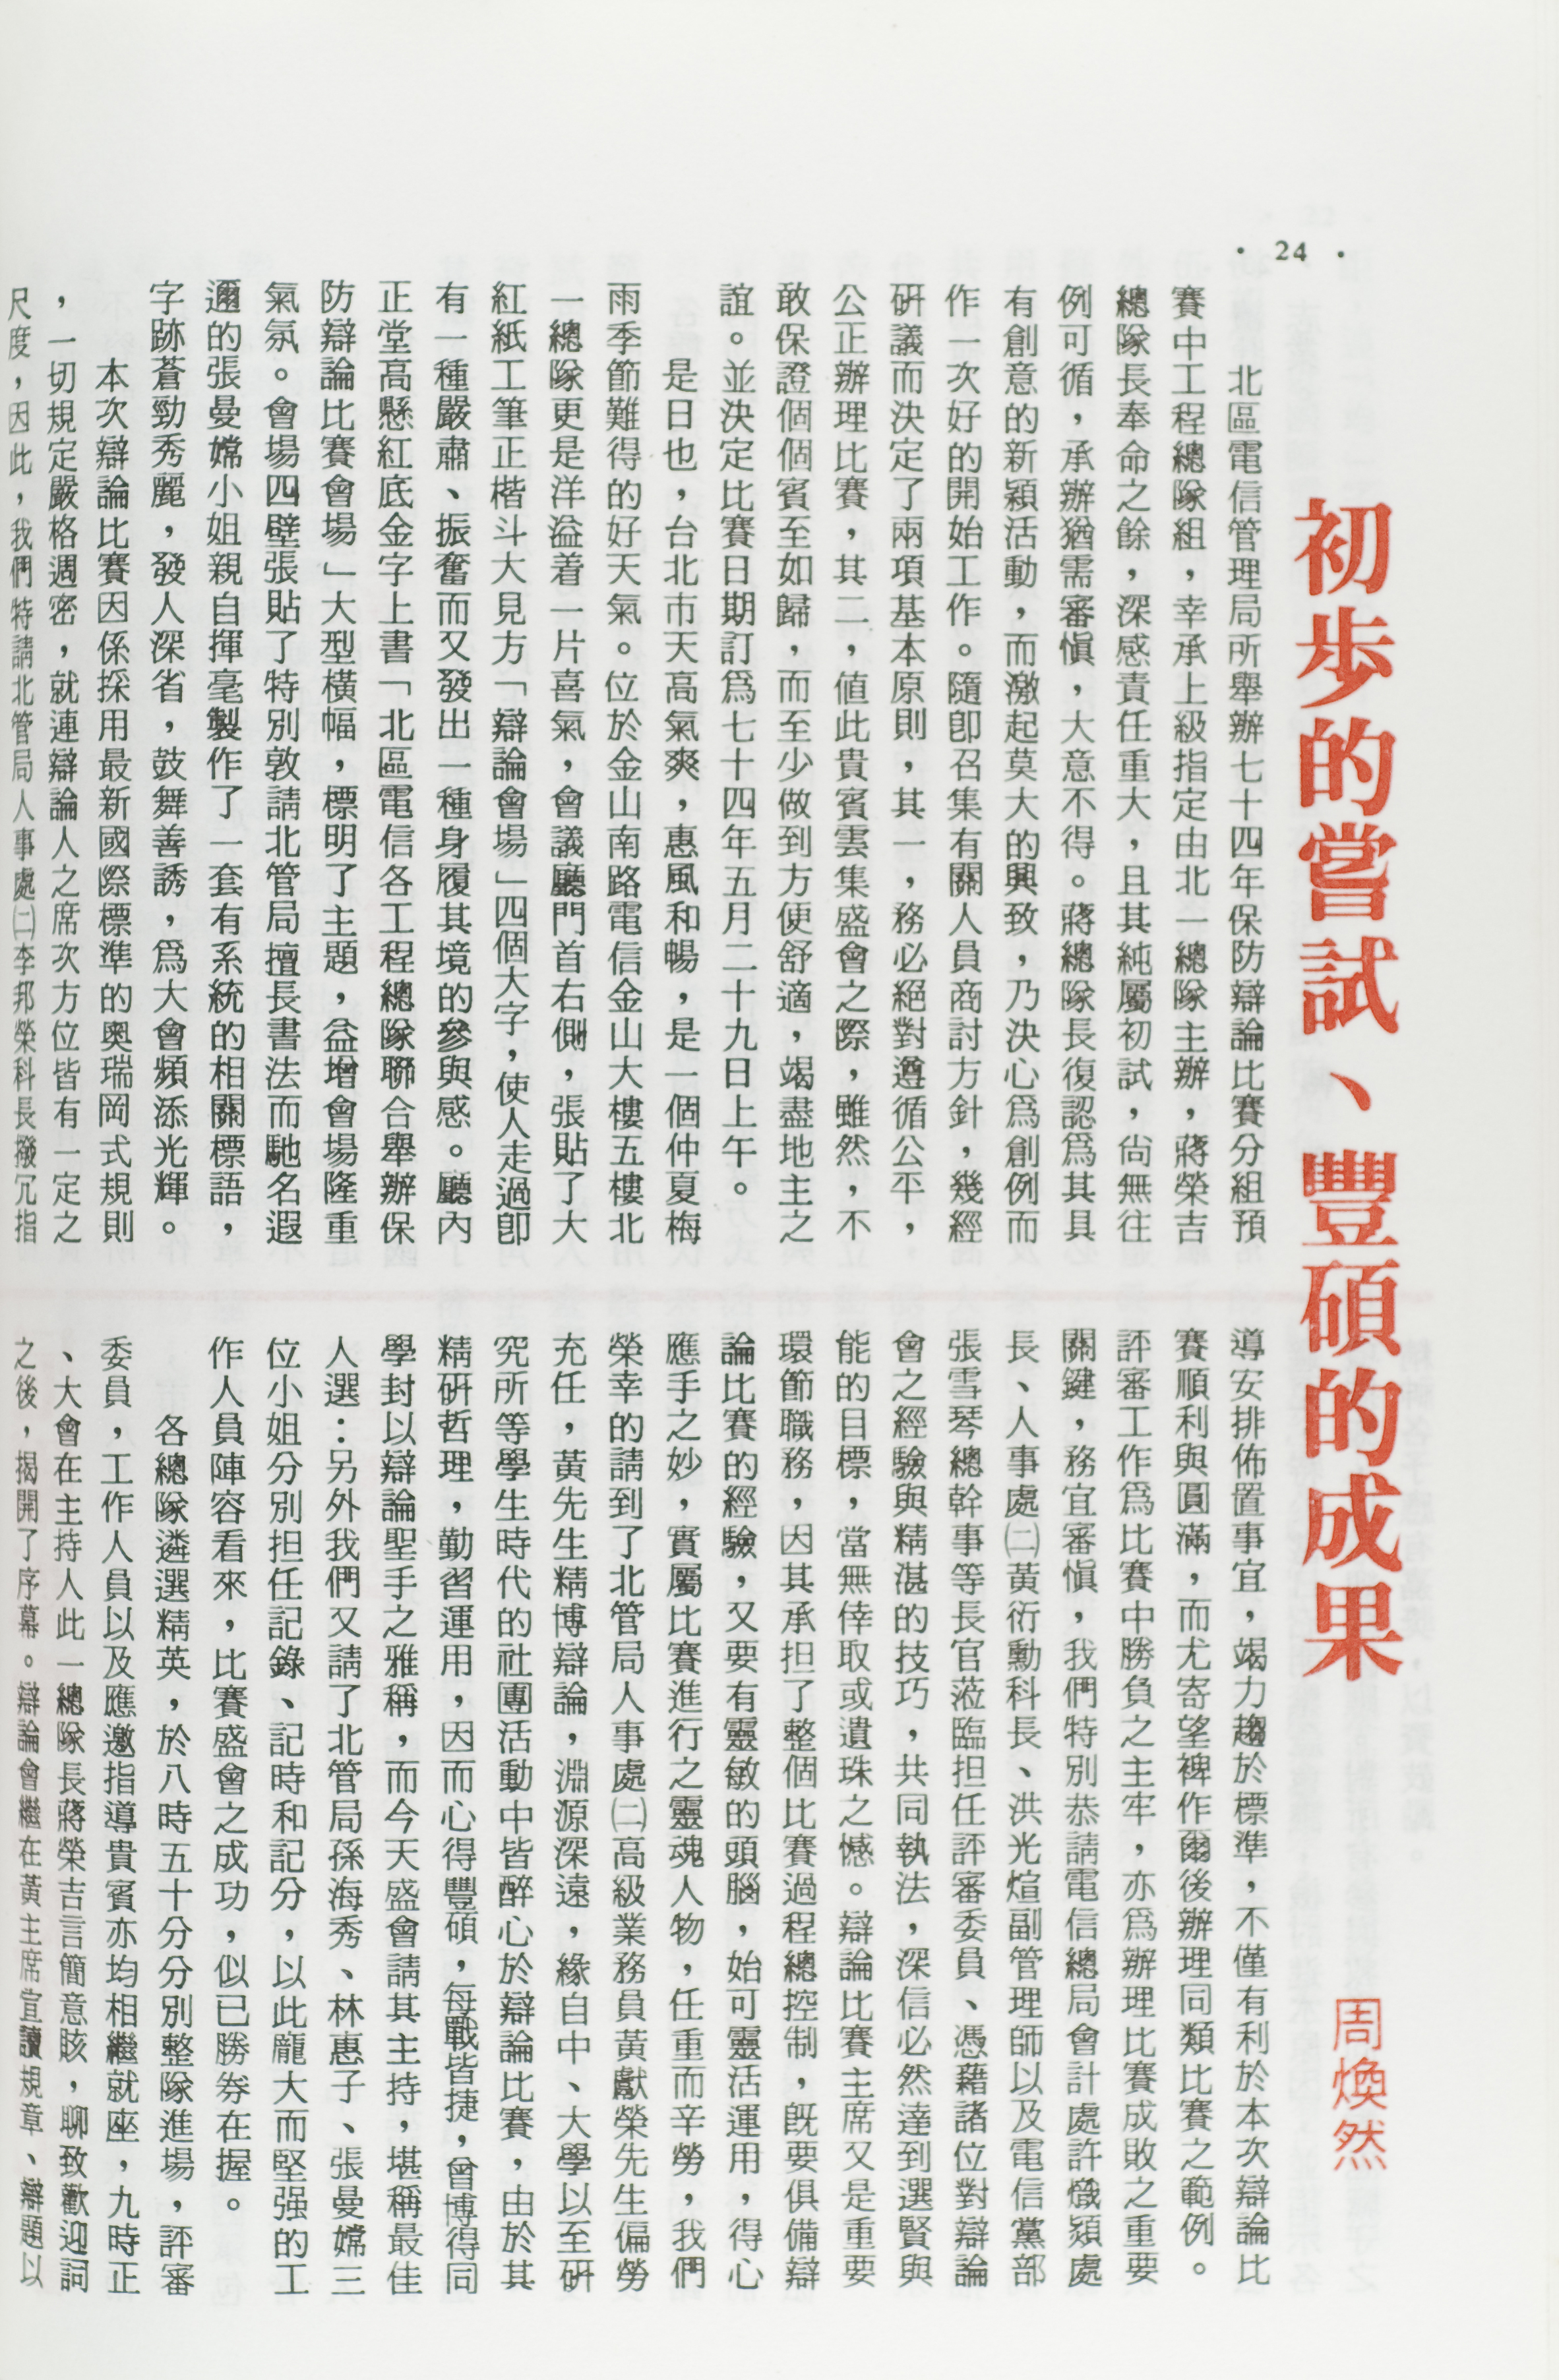 • 24 •
初步的嘗試、豐碩的成果
周煥然
北區電信管理局所舉辦七十四年保防辯論比賽分組預
賽中工程總隊組，幸承上級指定由北一總隊主辦，蔣榮吉
總隊長奉命之餘，深感責任重大，且其純屬初試，尙無往
例可循，承辦猶需審愼，大意不得。蔣總隊長復認爲其具
有創意的新穎活動，而激起莫大的興致，乃決心爲創例而
作一次好的開始工作。隨卽召集有關人員商討方針，幾經
硏議而決定了兩項基本原則，其一，務必絕對遵循公平，
公正辦理比賽，其二，値此貴賓雲集盛會之際，雖然，不
敢保證個個賓至如歸，而至少做到方便舒適，竭盡地主之
誼。並決定比賽日期訂爲七十四年五月二十九日上午。
是日也，台北市天高氣爽，惠風和暢，是一個仲夏梅
雨季節難得的好天氣。位於金山南路電信金山大樓五樓北
一總隊更是洋溢着一片喜氣，會議廳門首右側，張貼了大
紅紙工筆正楷斗大見方「辯論會場」四個大字，使人走過卽
有一種嚴肅、振奮而又發出一種身履其境的參與感。廳內
正堂高懸紅底金字上書「北區電信各工程總隊聯合舉辦保
防辯論比賽會場」大型橫幅，標明了主題，益增會場隆重
氣氛。會場四壁張貼了特別敦請北管局擅長書法而馳名遐
邇的張曼嫦小姐親自揮毫製作了一套有系統的相關標語，
字跡蒼勁秀麗，發人深省，鼓舞善誘，爲大會頻添光輝。
本次辯論比賽因係採用最新國際標準的奧瑞岡式規則
，一切規定嚴格週密，就連辯論人之席次方位皆有一定之
尺度，因此，我們特請北管局人事處㈡李邦榮科長撥冗指
導安排佈置事宜，竭力趨於標準，不僅有利於本次辯論比
賽順利與圓滿，而尤寄望裨作爾後辦理同類比賽之範例。
評審工作爲比賽中勝負之主牢，亦爲辦理比賽成敗之重要
關鍵，務宜審愼，我們特別恭請電信總局會計處許熾潁處
長、人事處㈡黃衍勳科長、洪光煊副管理師以及電信黨部
張雪琴總幹事等長官蒞臨担任評審委員、憑藉諸位對辯論
會之經驗與精湛的技巧，共同執法，深信必然達到選賢與
能的目標，當無倖取或遺珠之憾。辯論比賽主席又是重要
環節職務，因其承担了整個比賽過程總控制，旣要俱備辯
論比賽的經驗，又要有靈敏的頭腦，始可靈活運用，得心
應手之妙，實屬比賽進行之靈魂人物，任重而辛勞，我們
榮幸的請到了北管局人事處㈡高級業務員黃獻榮先生偏勞
充任，黃先生精博辯論，淵源深遠，緣自中、大學以至硏
究所等學生時代的社團活動中皆醉心於辯論比賽，由於其
精硏哲理，勤習運用，因而心得豐碩，每戰皆捷，曾博得同
學封以辯論聖手之雅稱，而今天盛會請其主持，堪稱最佳
人選：另外我們又請了北管局孫海秀、林惠子、張曼嫦三
位小姐分別担任記錄、記時和記分，以此龐大而堅强的工
作人員陣容看來，比賽盛會之成功，似已勝券在握。
各總隊遴選精英，於八時五十分分別整隊進場，評審
委員，工作人員以及應邀指導貴賓亦均相繼就座，九時正
、大會在主持人此一總隊長蔣榮吉言簡意賅，聊致歡迎詞
之後，揭開了序幕。辯論會繼在黃主席宣讀規章、辯題以